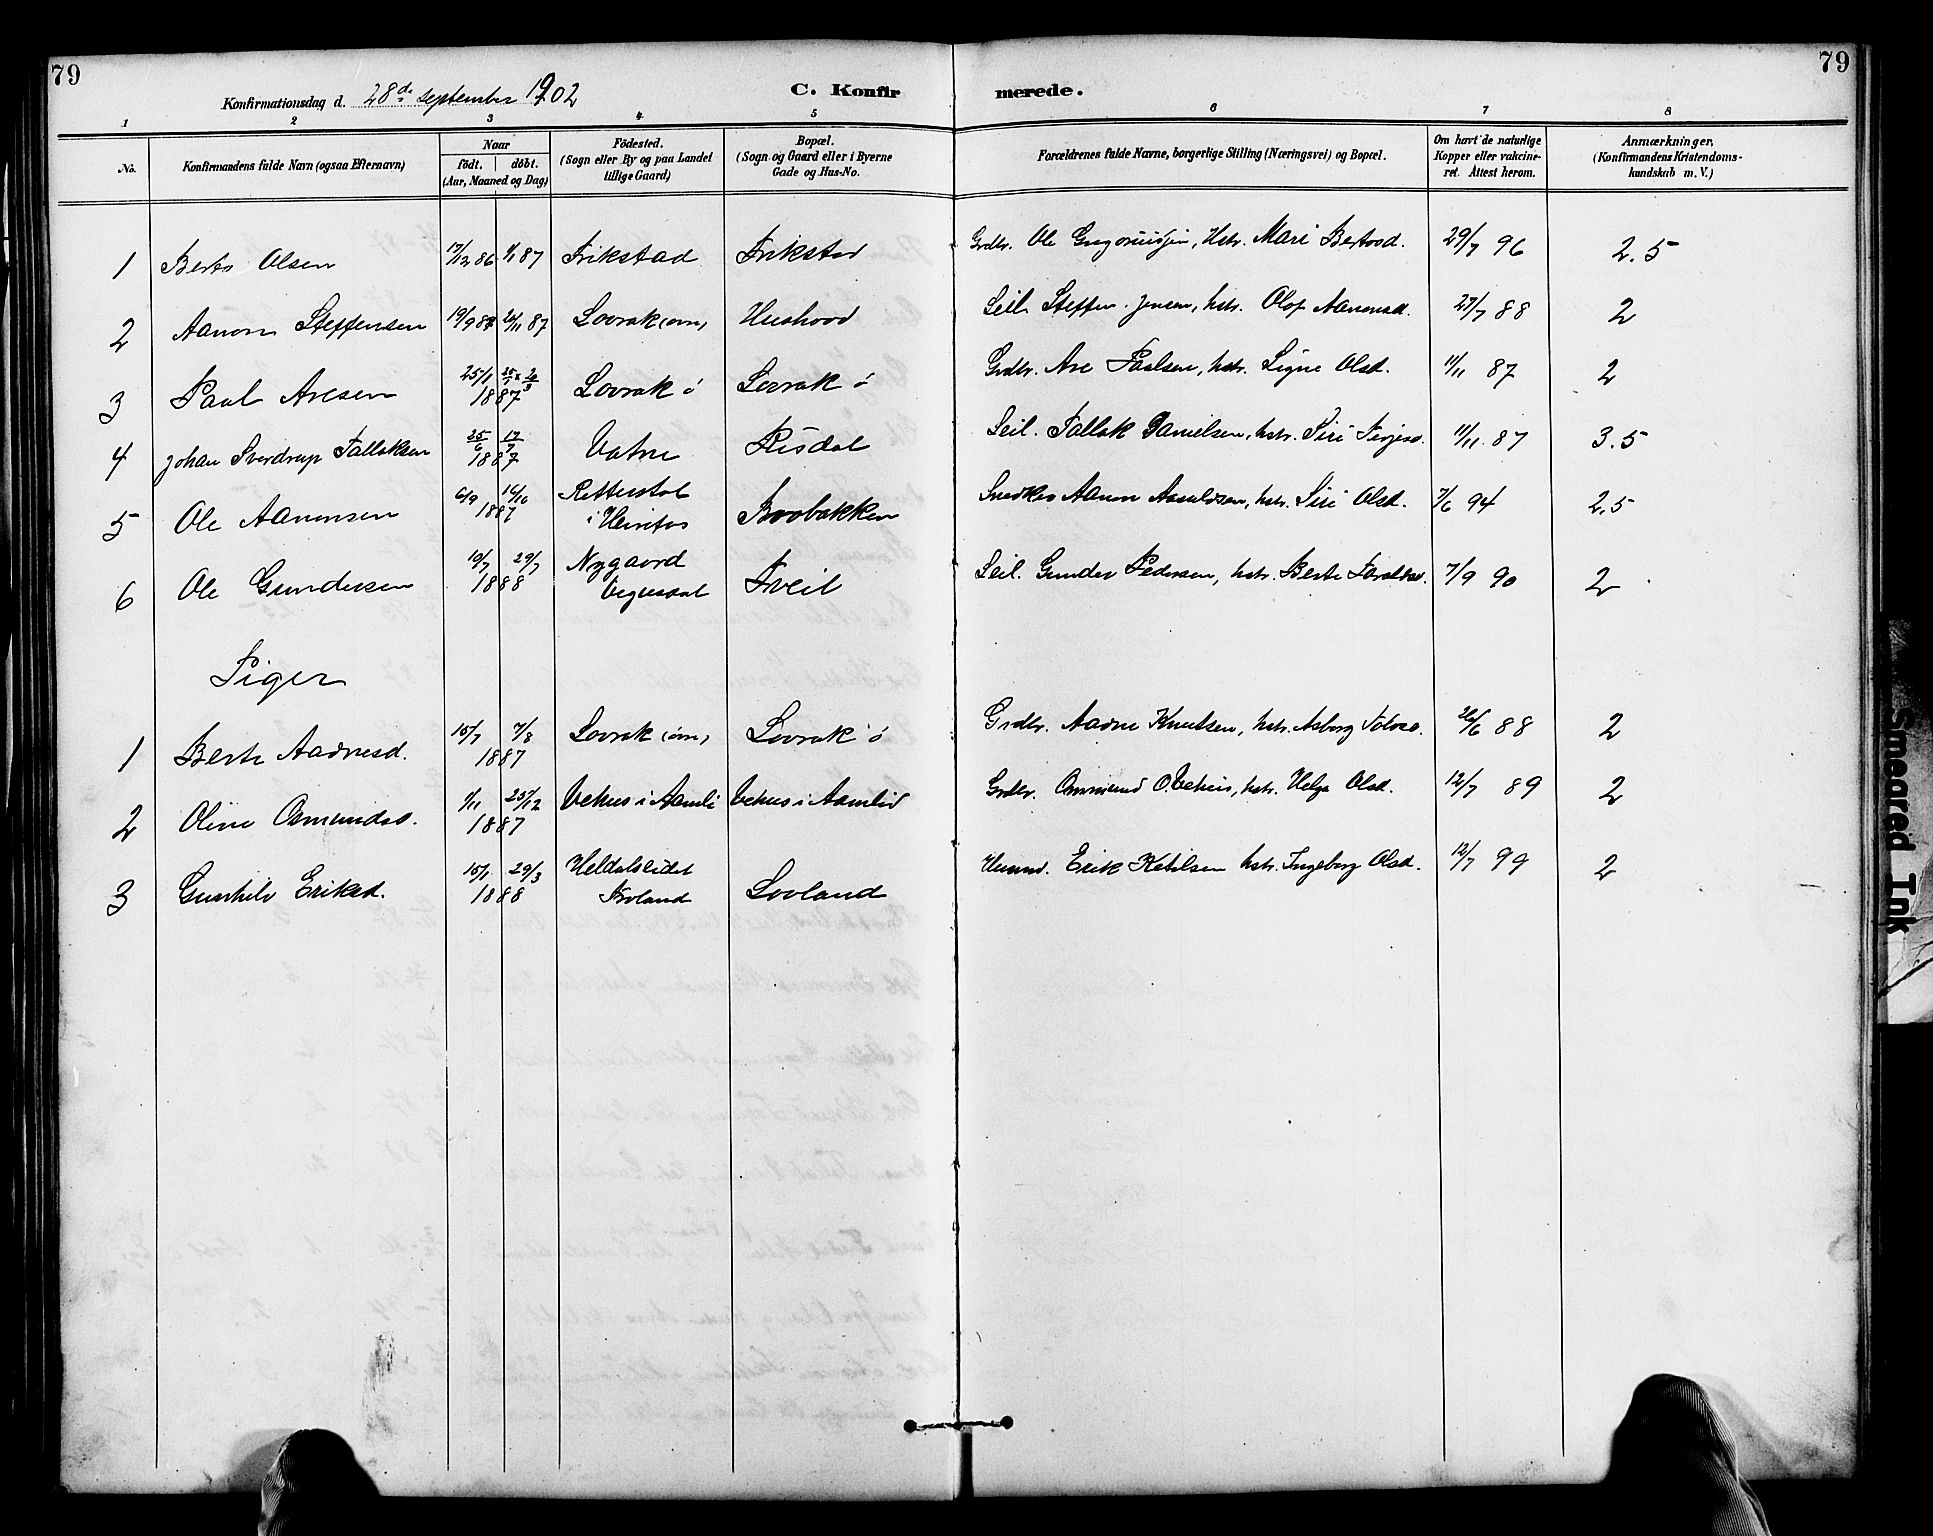 79
79
Konfirmationsdag d. 28de september 1902
C. Konfir merede.
1 2 3 4 5 6 7 8
No.
Konfirmandens fulde Navn (ogsaa Efternavn)
Naar
födt. döbt.
(Aar, Maaned og Dag)
Födested.
(Sogn eller By og paa Landet
tillige Gaard)
Bopæl.
(Sogn og Gaard eller i Byerne
Gade og Hus-No.
Forældrenes fulde Navne, borgerlige Stilling (Næringsvei) og Bopæl.
Om havt de naturlige
Kopper eller vakcine-
ret. Attest herom.
Anmærkninger,
(Konfirmandens Kristendoms-
kundskab m. V.)
1 Olsen 17/12 86 87 Frikstad Grdbr. Ole hstr. Mari 29/7 96 2.5
2 Aanon Steffensen 19/9 87 Lovrak Seil. Steffen Jensen, hstr. Olop Aanonsd. 27/7 88 2
3 Paul Aresen 25/1 1887 Lovrak Lovrak Grdbr. Are Paulsen, hstr. Signe Olsd. 11/11 87 2
4 Johan Sverdrup Tallaksen 25/6 17/7 1887 Vatne Risdal Seil. Tallak Danielsen, hstr. Siri 11/11 87 3.5
5 Ole Aanonsen 6/9 16/10 1887 i Snedker Aanon hstr. Siri Olsd. 7/6 94 2.5
6 Ole Gundersen 10/7 29/7 1888 Nygaard Vegusdal Tveit Seil. Gunder Pedersen, hstr. Berte 7/9 90 2
Piger
1 Berte Aadnesd. 15/7 7/8 1887 Lovrak Lovrak Grdbr. Aadne Knutsen, hstr. Asborg 26/6 88 2
2 Oline Osmundsd. 25/12 1887 Vehus i Aamli Vehus i Aamlid Grdbr. Osmund O. Vehus, hstr. Helga Olsd. 12/7 89 2
3 Gunhild Eriksd. 15/1 29/3 1888 Froland Lovland Erik Ketilsen hstr. Ingeborg Olsd. 12/7 99 2
Smeared Ink